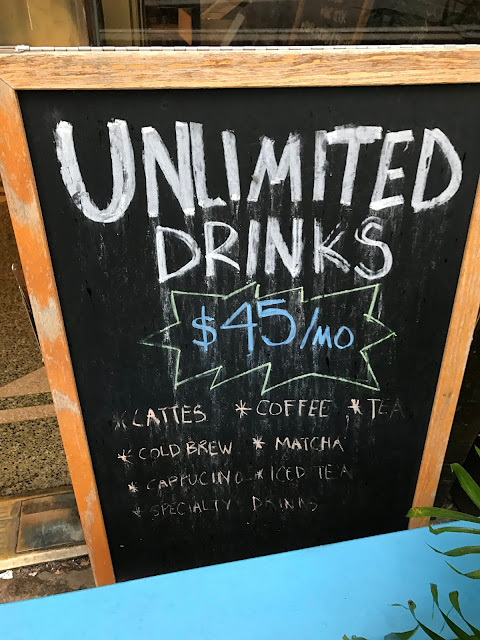 UNLIMITED
DRINKS
$45/MO
* LATTES * COFFEE * TEA
* COLD BREW * MATCHA
* CAPPUCINO * ICED TEA
* SPECIALTY DRINKS